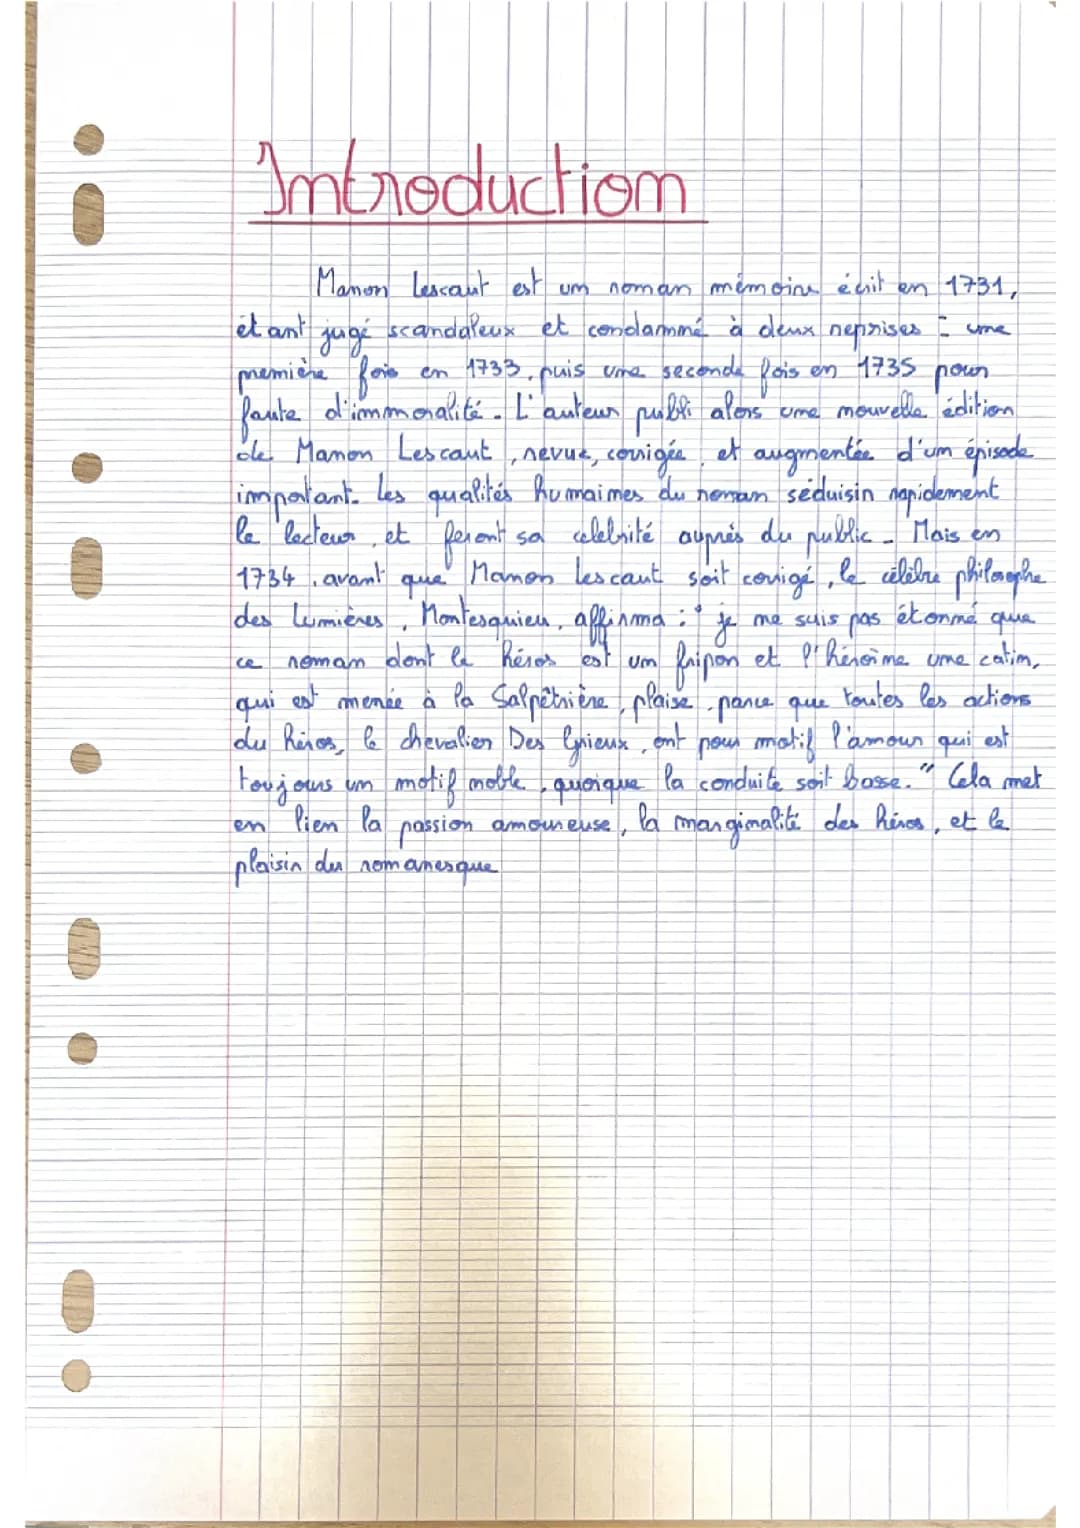 Introduction
Manon Lescaut est un roman mémoire écrit en 1731,
étant jugé scandaleux et condamné à deux reprises : une
première fois en 1733, puis une seconde fois en 1735 pour
faute d'immoralité. L'auteur publi alors une nouvelle édition
de Manon Lescaut, revue, corrigée, et augmentée d'un épisode
important. Les qualités humaines du roman séduisin rapidement
le lecteur, et feront sa celebrité auprès du public. Mais en
1734, avant que Manon Lescaut soit corrigé, le célèbre philosophe
des Lumières, Montesquieu, affirma : " je me suis pas étonné que
ce roman dont le héros est un fripon et l'héroïne une catin,
qui est menée à la Salpêtrière, plaise, parce que toutes les actions
du héros, le chevalier Des Grieux, ont pour motif l'amour qui est
toujours un motif noble, quoique la conduite soit basse." Cela met
en lien la passion amoureuse, la marginalité des héros, et le
plaisir du romanesque